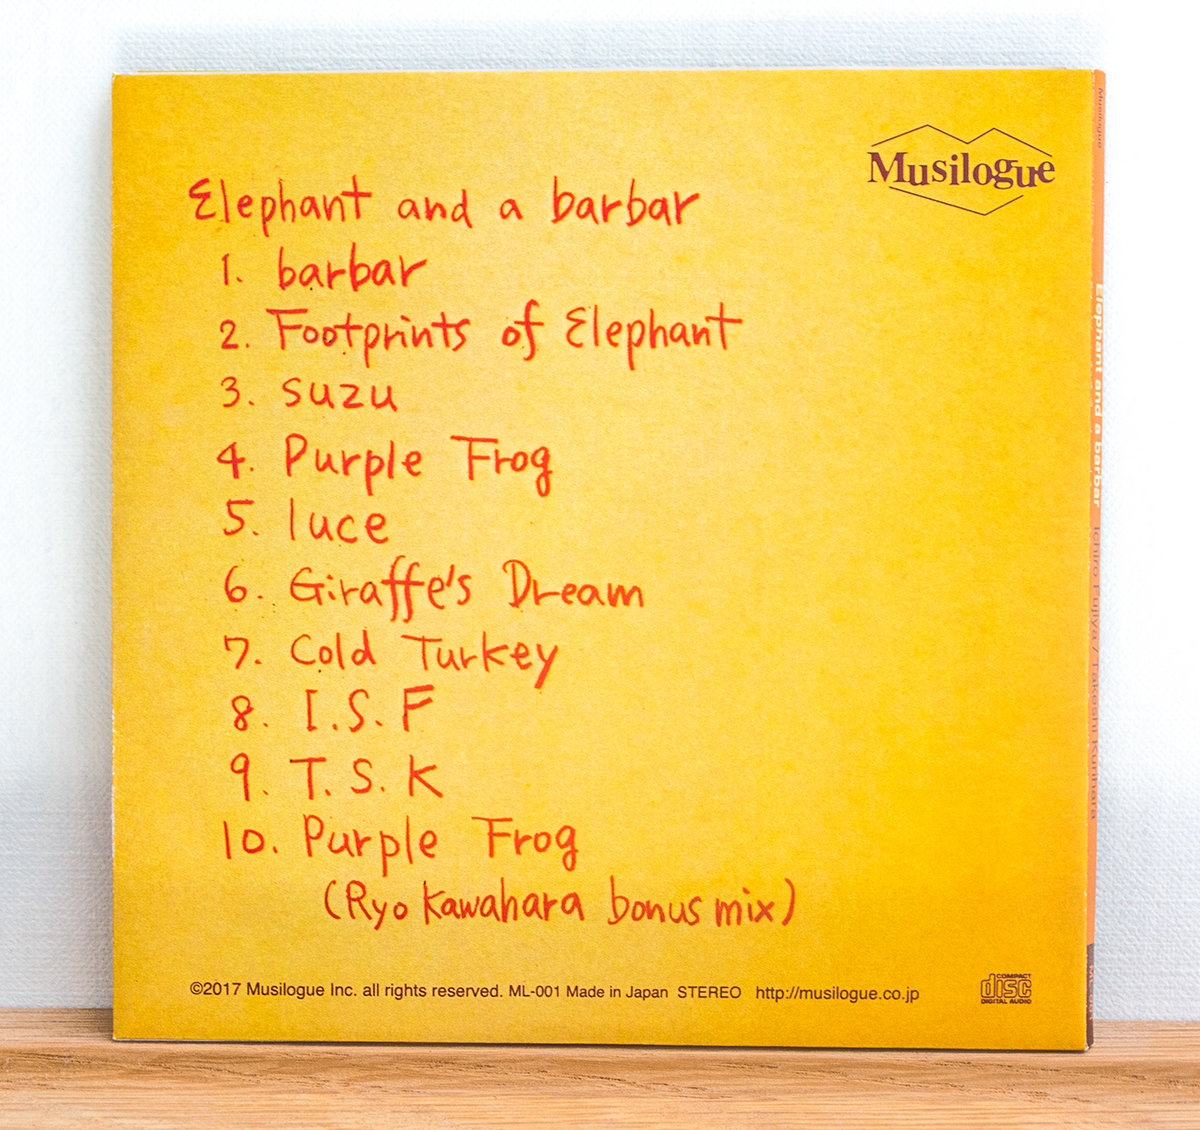 Musilogue
Elephant and a barbar
1. barbar
2. Footprints of Elephant
3. suzu
4. Purple Frog
5. luce
6. Giraffe's Dream
7. Cold Turkey
8. I.S.F
9. T.S.K
10. Purple Frog
(Ryo Kawahara bonus mix)
©2017 Musilogue Inc. all rights reserved. ML-001 Made in Japan STEREO http://musilogue.co.jp
COMPACT
disc
DIGITAL AUDIO
Musilogue
Elephant and a barbar Ichiro Fujiya / Takeshi Kurihara